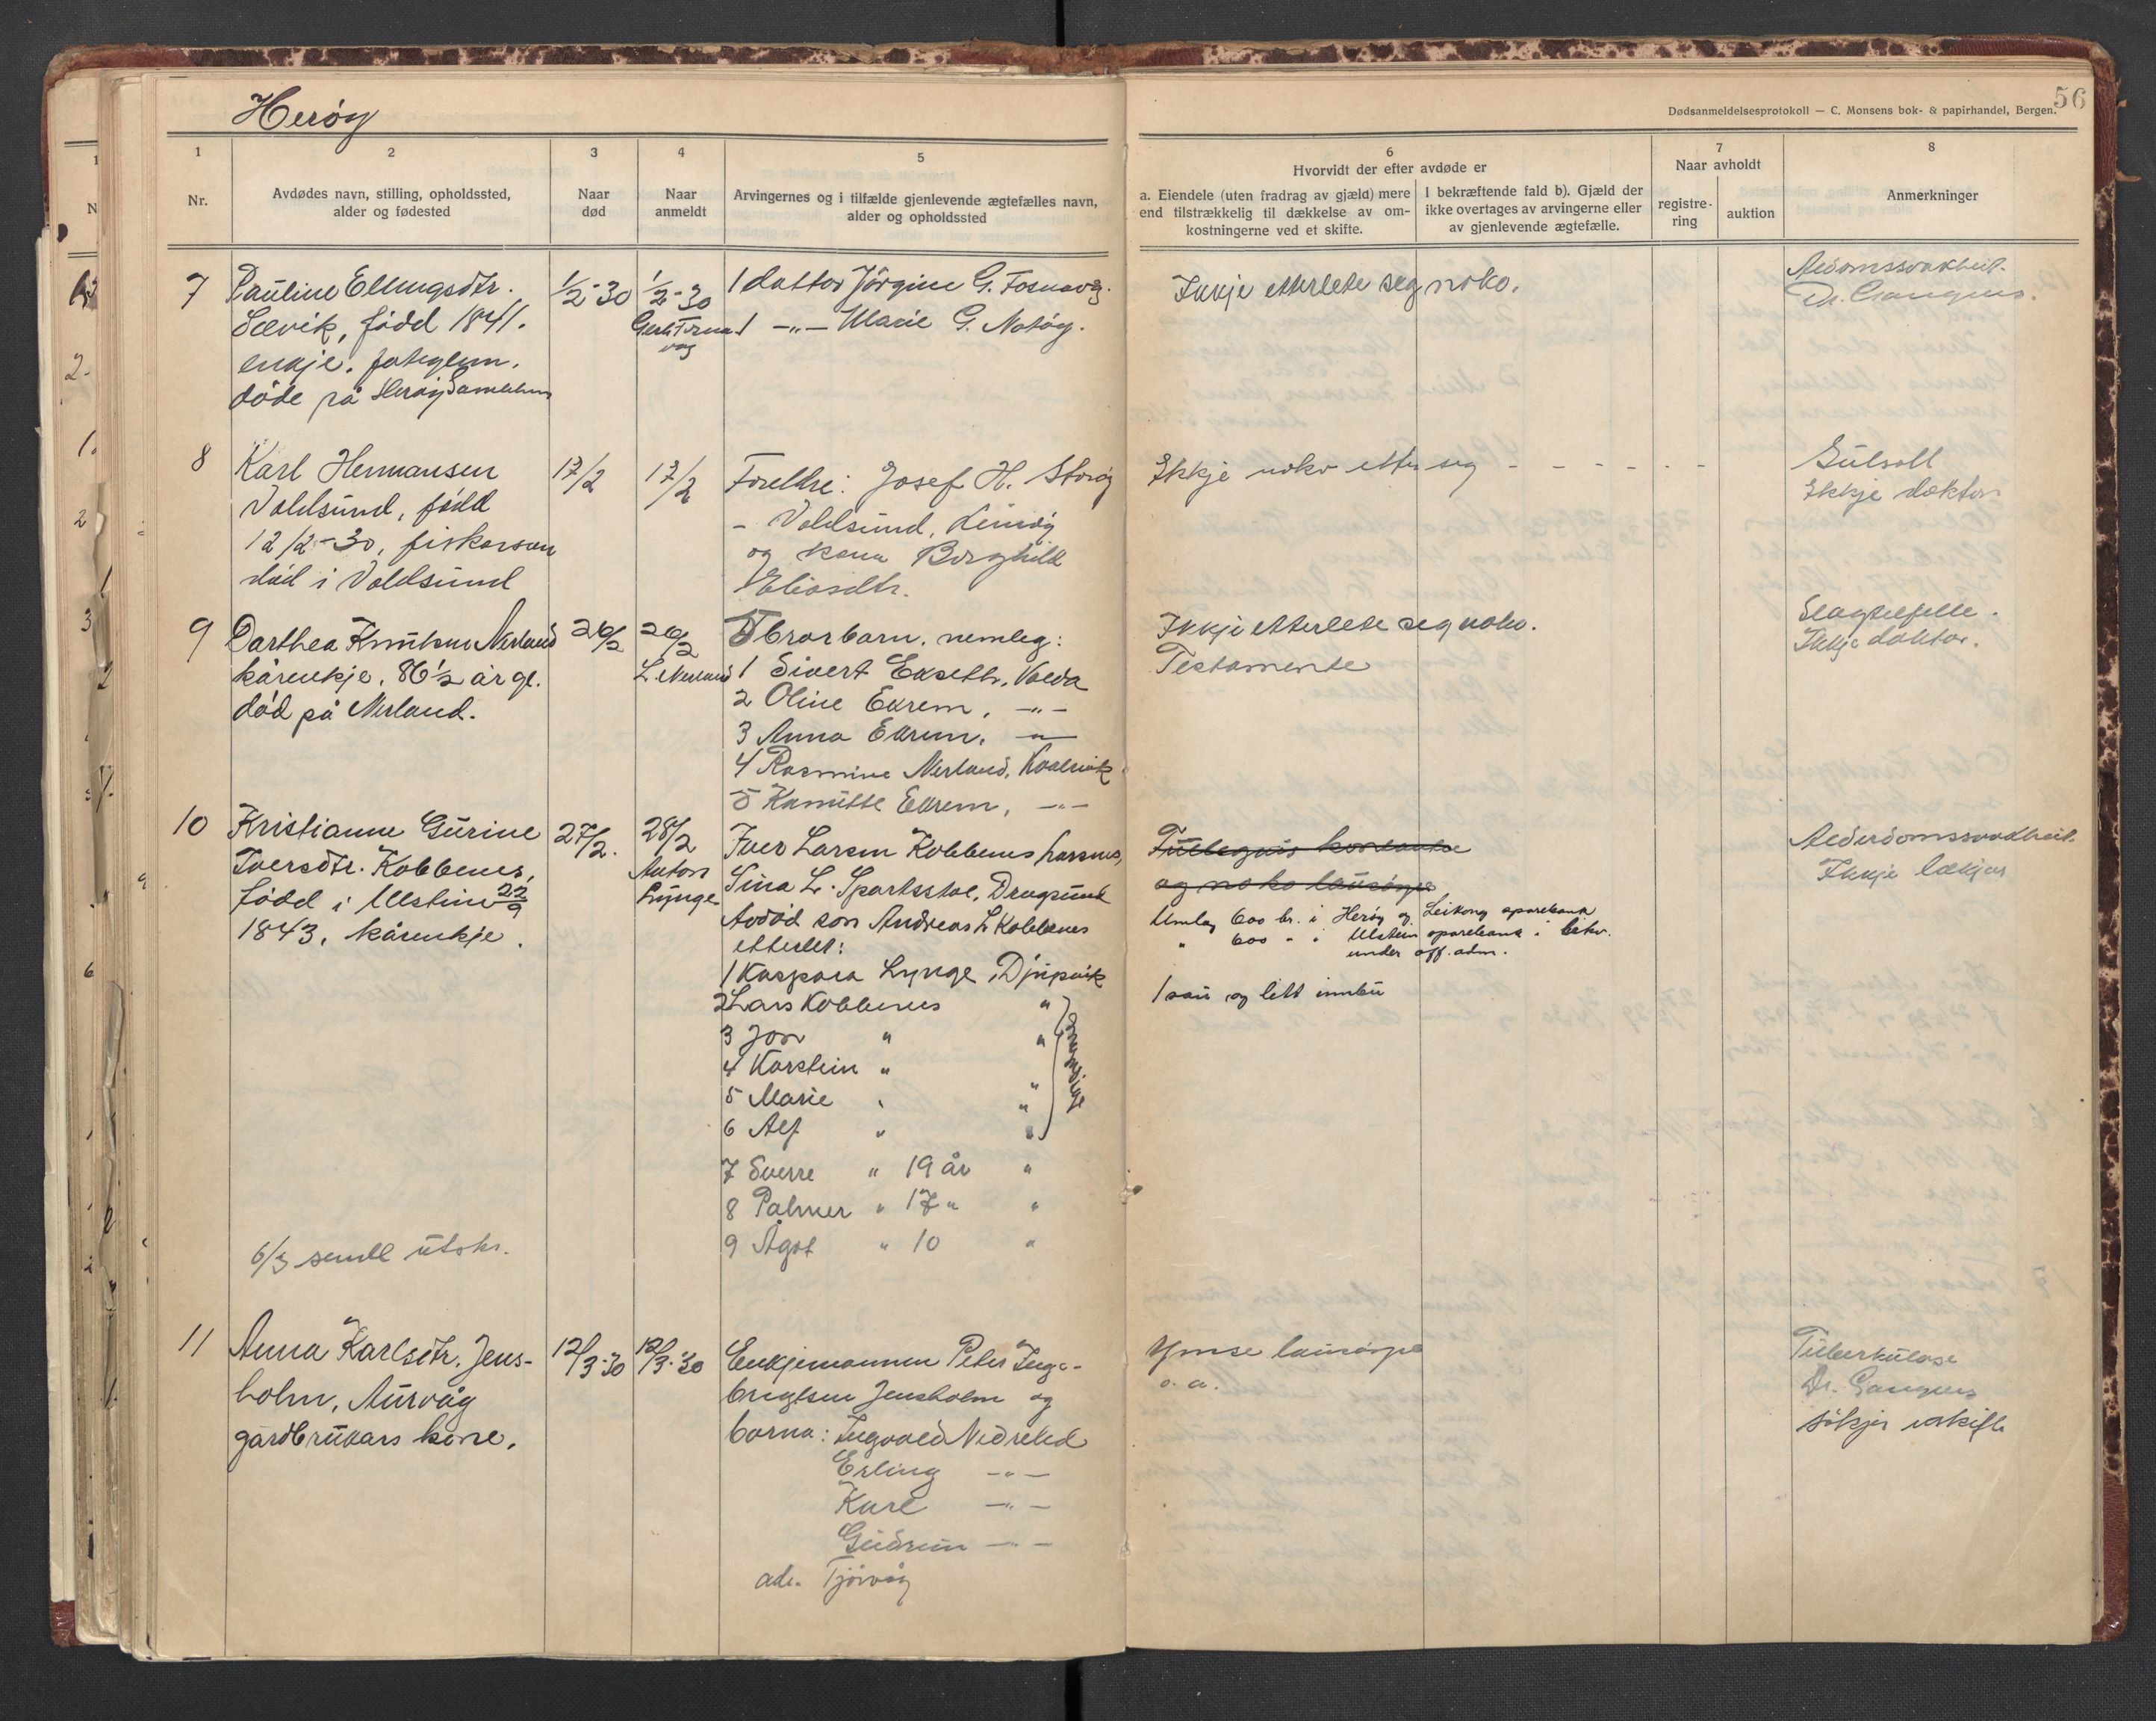 Herøy
56
Dødsanmeldelsesprotokoll — C. Monsens bok- & papirhandel, Bergen.
1
Nr.
2
Avdødes navn, stilling, opholdssted,
alder og fødested
3
Naar
død
4
Naar
anmeldt
5
Arvingernes og i tilfælde gjenlevende ægtefælles navn,
alder og opholdssted
6
Hvorvidt der efter avdøde er
a. Eiendele (uten fradrag av gjæld) mere
end tilstrækkelig til dækkelse av om-
kostningerne ved et skifte.
I bekræftende fald b). Gjæld der
ikke overtages av arvingerne eller
av gjenlevende ægtefælle.
7
Naar avholdt
registre-
ring
auktion
8
Anmerkninger
7
Pauline Ellingsdtr.
Sævik, fødd 1841.
enkje. fateglem.
døde på Herøy
1/2-30
1/2-30
1 dotter Jörgine G. Fosnavåg.
1 -"- Marie G. Notøy.
Ikkje etterlete seg noko.
8
Karl Hermansen
Voldsund, född
12/2-30, fiskarson
död i Voldsund
13/2
13/2
Foreldre: Josef H. Storøy
- Voldsund, Leinöy
og kona Borghild
Eliasdtr.
Ikkje noko etter seg - - - - - -
Gulsott
Ikkje doktor
9
Darthea Knutsen Nerland
kårenkje, 86 1/2 år gl.
död på Nerland.
26/2
26/2
L. Nerland
5 brorborn, nemleg:
1 Sivert Ekseth, Volda
2 Oline Ekrem, -"-
3 Anna Ekrem, -"-
4 Rasmine Nerland,
5 Ekrem, -"-
Ikkje etterlete seg noko.
Testamente
Slagtilfelle.
Ikkje doktor.
10
Kristianne Gurine
Iversdtr. Kobbenes,
fødd i Ulstein 22/9
1843, kårenkje.
6/3 sendt utskr.
27/2.
28/2
Anton
Lynge
Iver Larsen Kobbenes
Sina L. Dragsund
Avdöd son Andreas L Kobbenes
etterlet:
1 Kaspara Lynge, Djupvik
2 Lars Kobbenes "
3 Jon " "
4 Karstein " "
5 Marie " "
6 Alf " "
7 Sverre " 19 år "
8 Palmer " 17 " "
9 Ågot " 10 "
og noko lausöyre
Umlag 600 kr. i Herøy og Leikong sparebank
" 600 " i Ulstein sparebank i
under off. adm.
1 sau og litt innbu
Alderdomssvakheit.
Ikkje lækjar
11
Anna Karlsdtr. Jens-
holm, Aurvåg
gardbrukars kone.
12/3-30
12/3-30
Enkjemannen Peter Inge-
brigtsen Jensholm og
borna: Ingvald Nedreled
Erling -"-
Karl -"-
Gudrun -"-
adr. Tjørvåg
Ymse lausöyre
o. a.
Tuberkulose
Dr.
sökjer uskifte